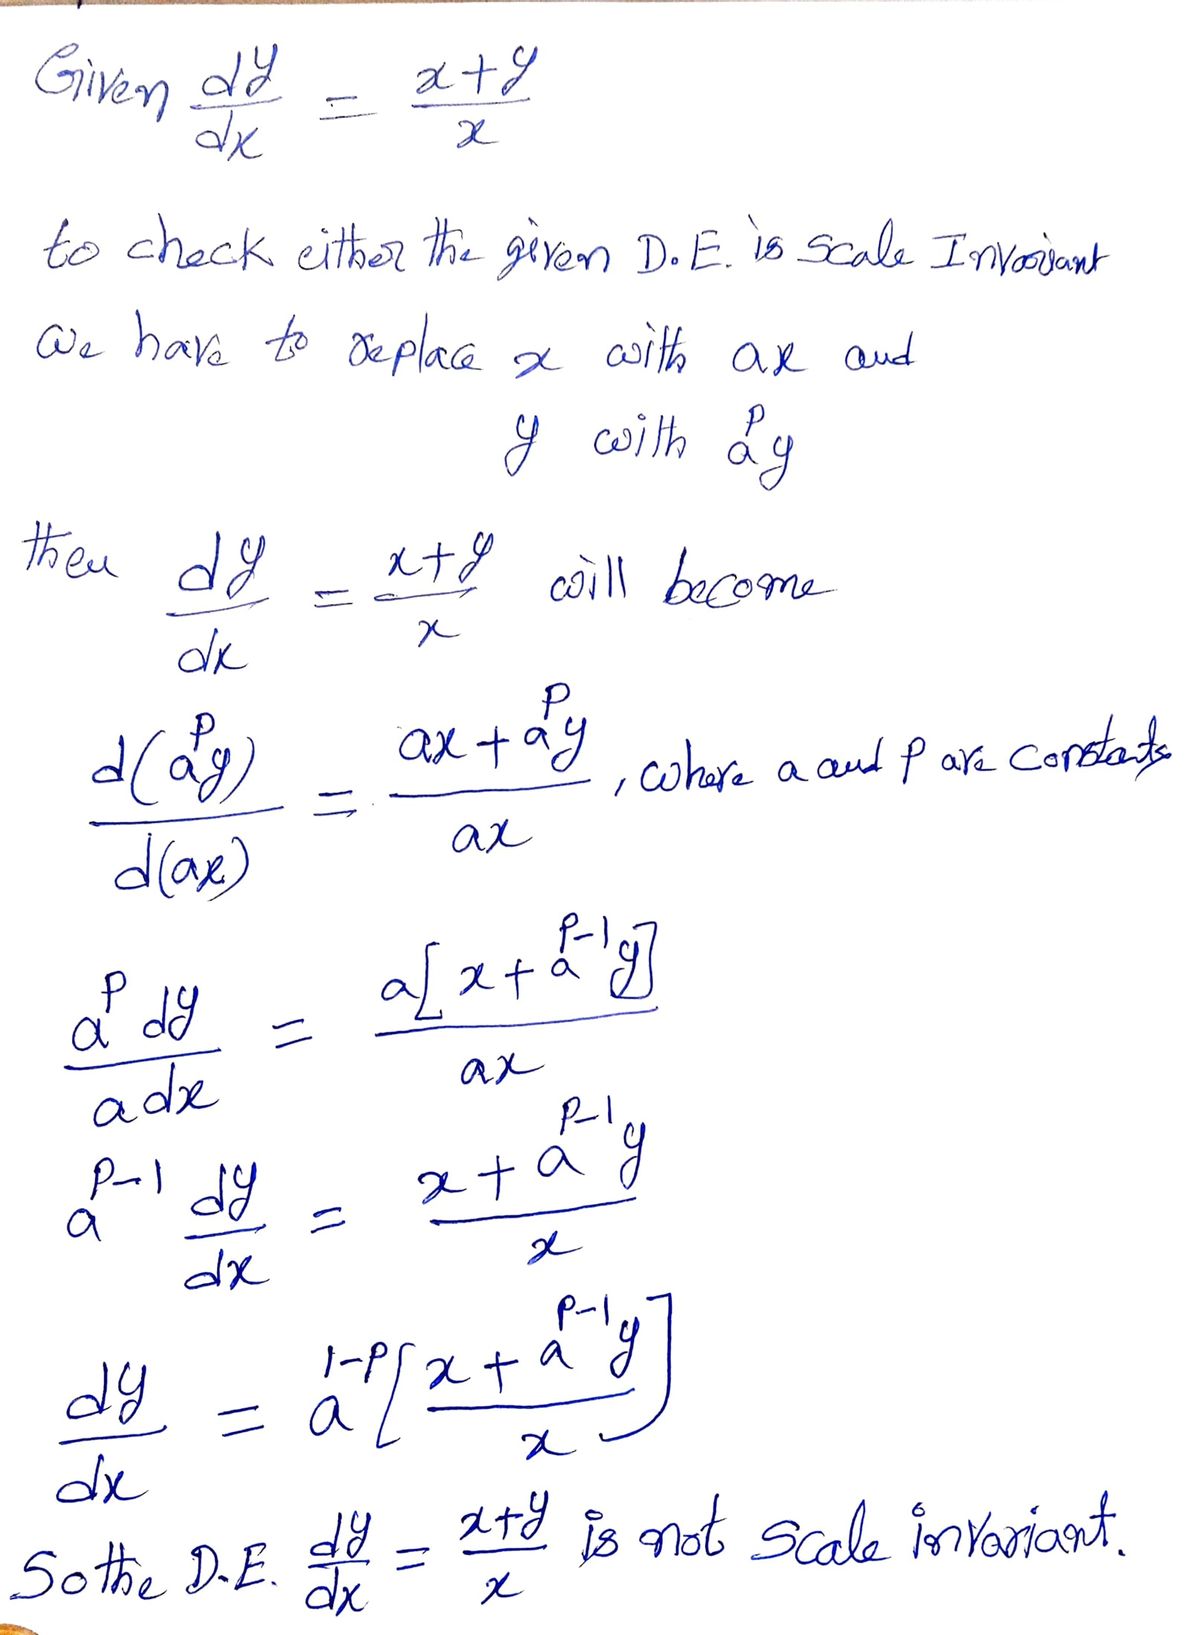 Given dy/dx = x+y/x
to check either the given D.E. is Scale Invariant
we have to replace x with ax and
y with a^p y
then dy/dx = x+y/x will become
d(a^p y)/d(ax) = ax+a^p y/ax , where a and p are constants
a^p dy/a dx = a[x+a^p-1 y]/ax
a^p-1 dy/dx = x+a^p-1 y/x
dy/dx = a^1-p [x+a^p-1 y/x]
So the D.E. dy/dx = x+y/x is not scale invariant.